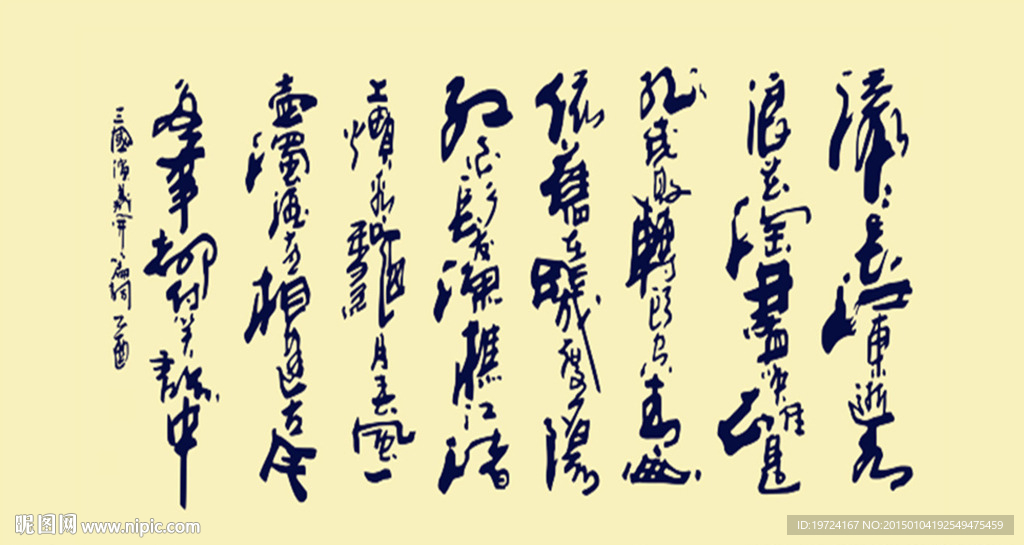 滾滾長江東逝水
浪花淘盡英雄是
非成敗轉頭空青山
依舊在幾度夕陽
紅白髮漁樵江渚
上慣看秋月春風一
壺濁酒喜相逢古今
多少事都付笑談中
三國演義開篇詞 乙酉
昵图网 www.nipic.com
ID:19724167 NO:20150104192549475459